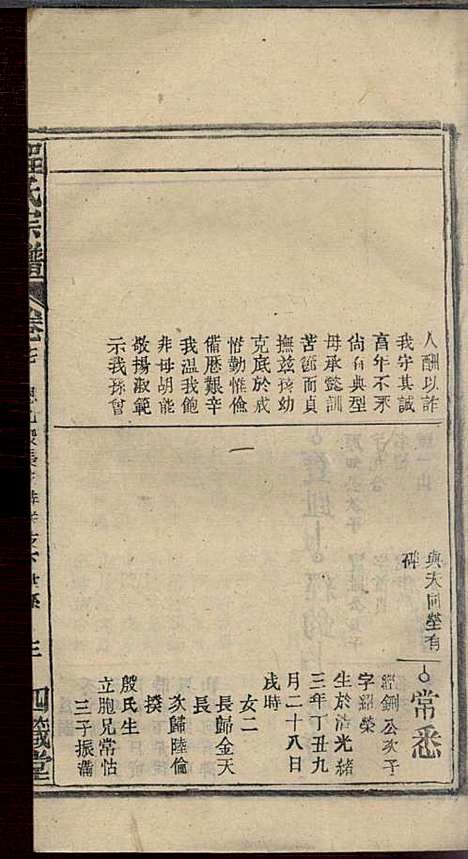 人酬以詐
我守其誠
高年不永
尚有典型
母承懿訓
苦節而貞
撫茲孩幼
克底於成
惟勤惟儉
備歷艱辛
我溫我飽
非母胡能
敬揚淑範
示我孫曾
與夫同塋有
碑
常悉
經釗公次子
字紹榮
生於清光緒
三年丁丑九
月二十八日
戌時
女二
長歸金天
長
次歸陸倫
撲
殷氏生
立胞兄常怙
三子振滿
氏宗譜
卷七
三
四箴堂